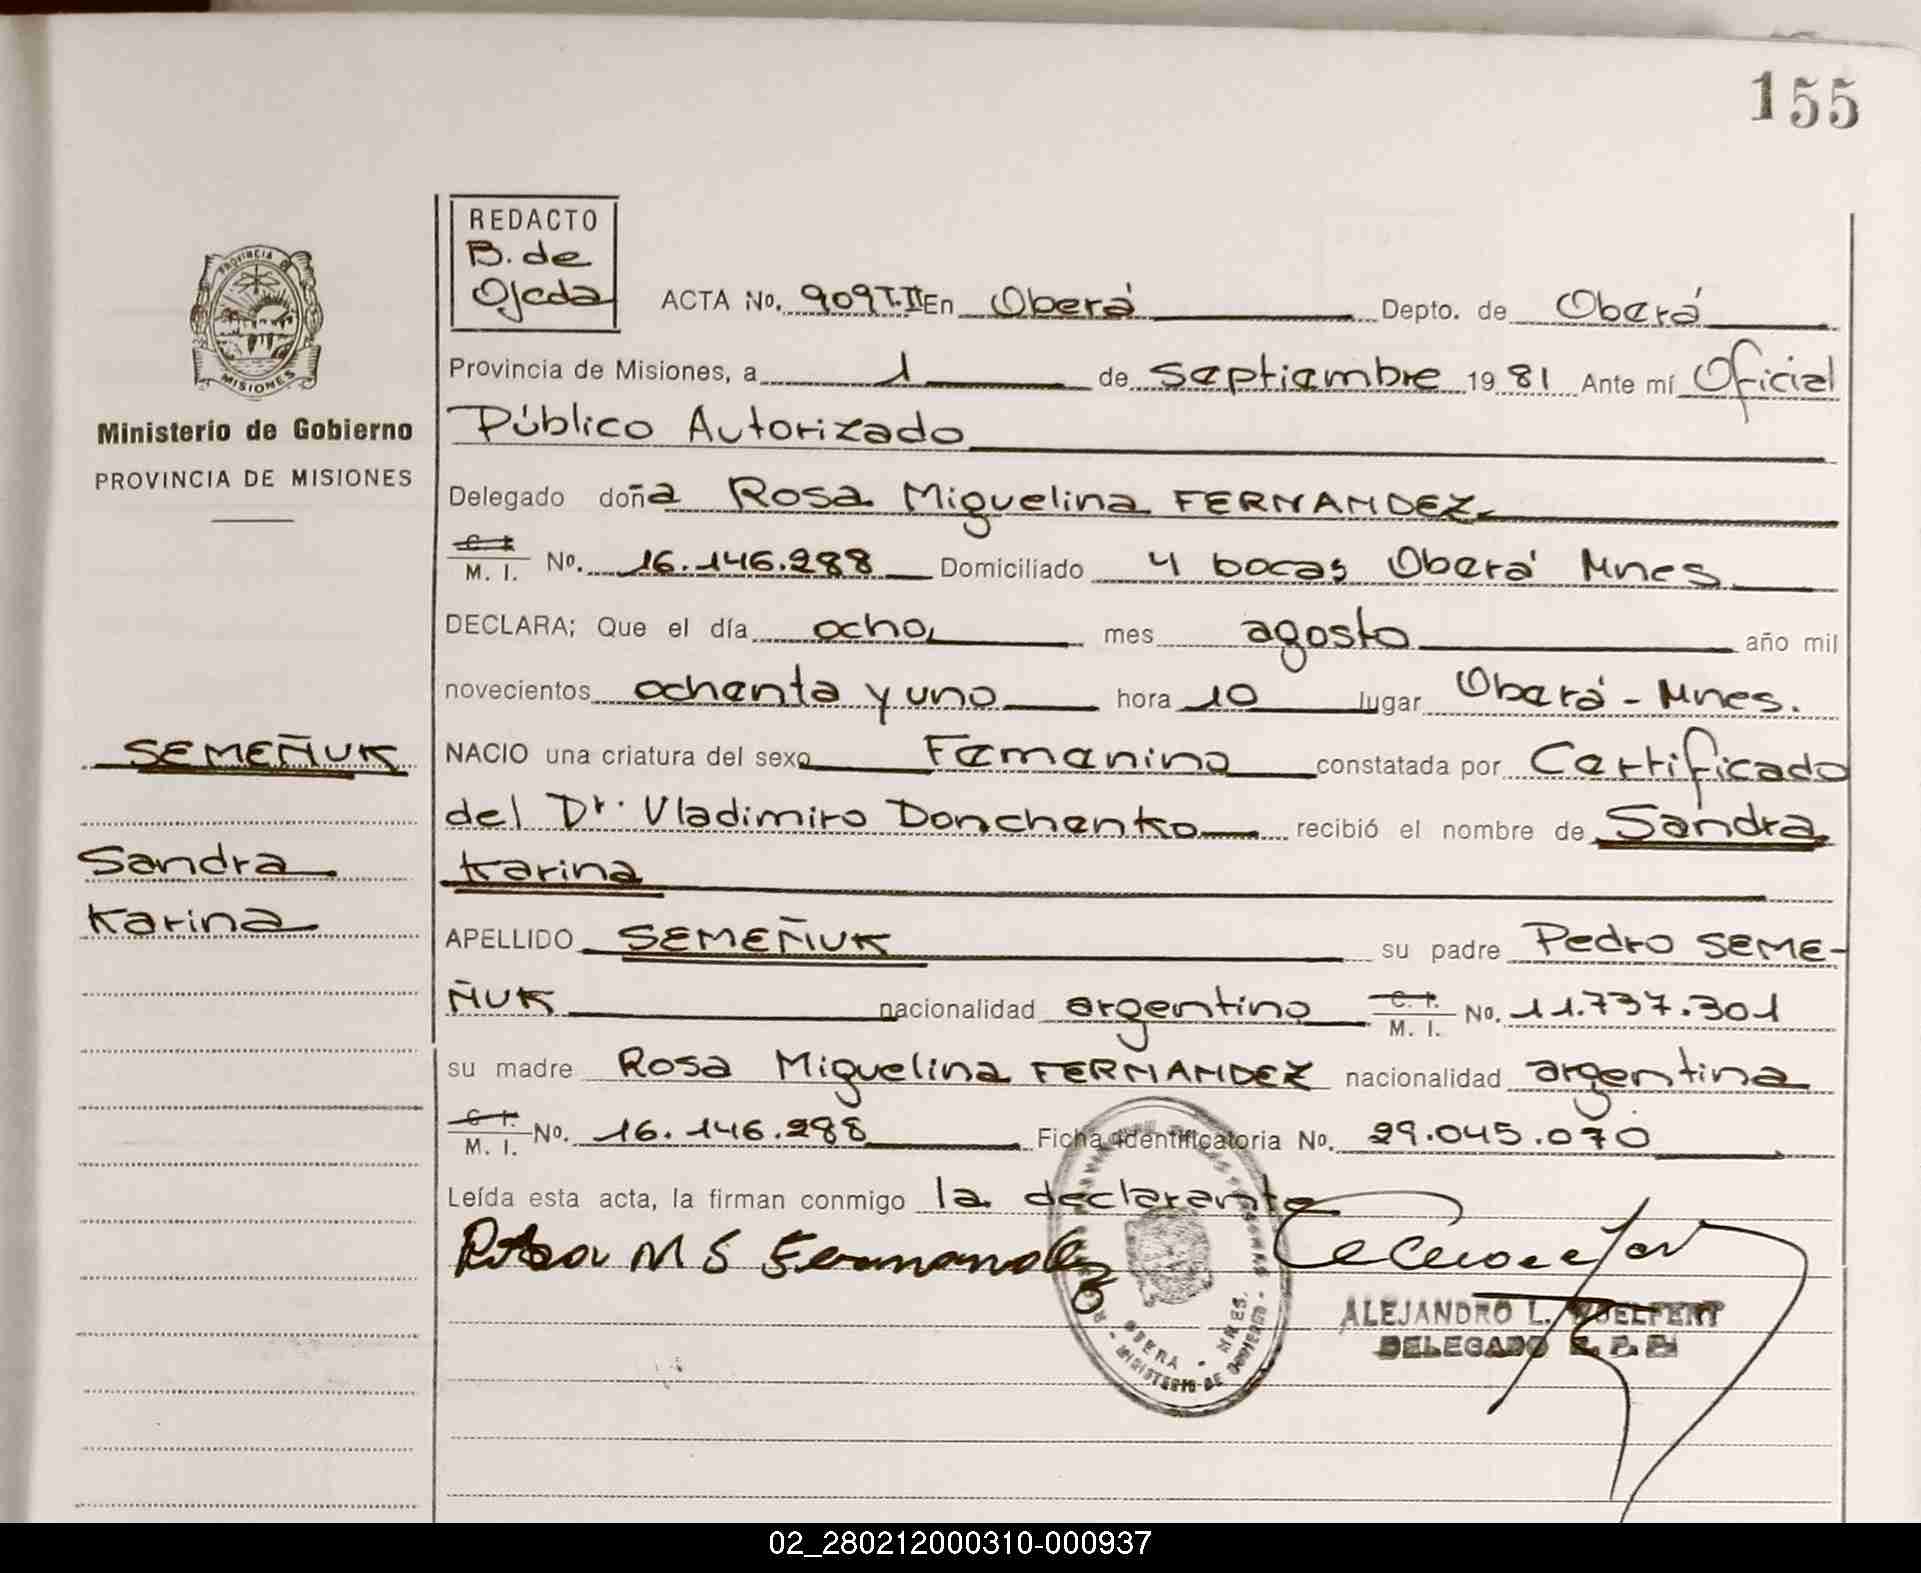 155
REDACTO
B. de
Ojeda
PROVINCIA DE
MISIONES
ACTA No. 909 T.II En Oberá Depto. de Oberá
Provincia de Misiones, a 1 de septiembre 19 81 Ante mí Oficial
Ministerio de Gobierno
PROVINCIA DE MISIONES
Público Autorizado
Delegado doña Rosa Miguelina FERNANDEZ
C. I.
M. I. No. 16.146.288 Domiciliado 4 bocas Oberá Mnes
DECLARA; Que el día ocho mes agosto año mil
novecientos ochenta y uno hora 10 lugar Oberá - Mnes.
SEMEÑUK
Sandra
Karina
NACIO una criatura del sexo Femenino constatada por Certificado
del Dr. Vladimiro Donchenko recibió el nombre de Sandra
Karina
APELLIDO SEMEÑUK su padre Pedro SEME-
ÑUK nacionalidad argentino C. I. M. I. No. 11.737.301
su madre Rosa Miguelina FERNANDEZ nacionalidad argentina
C. I.
M. I. No. 16.146.288 Ficha identificatoria No. 29.045.070
Leída esta acta, la firman conmigo la declarante
Rosa M S Fernandez
OBERA - MNES.
MINISTERIO DE GOBIERNO
ALEJANDRO L.
DELEGADO
02_280212000310-000937